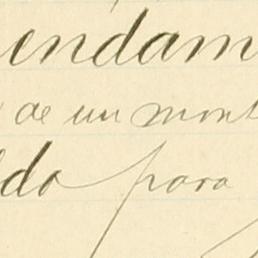 endam
de un mont
do para